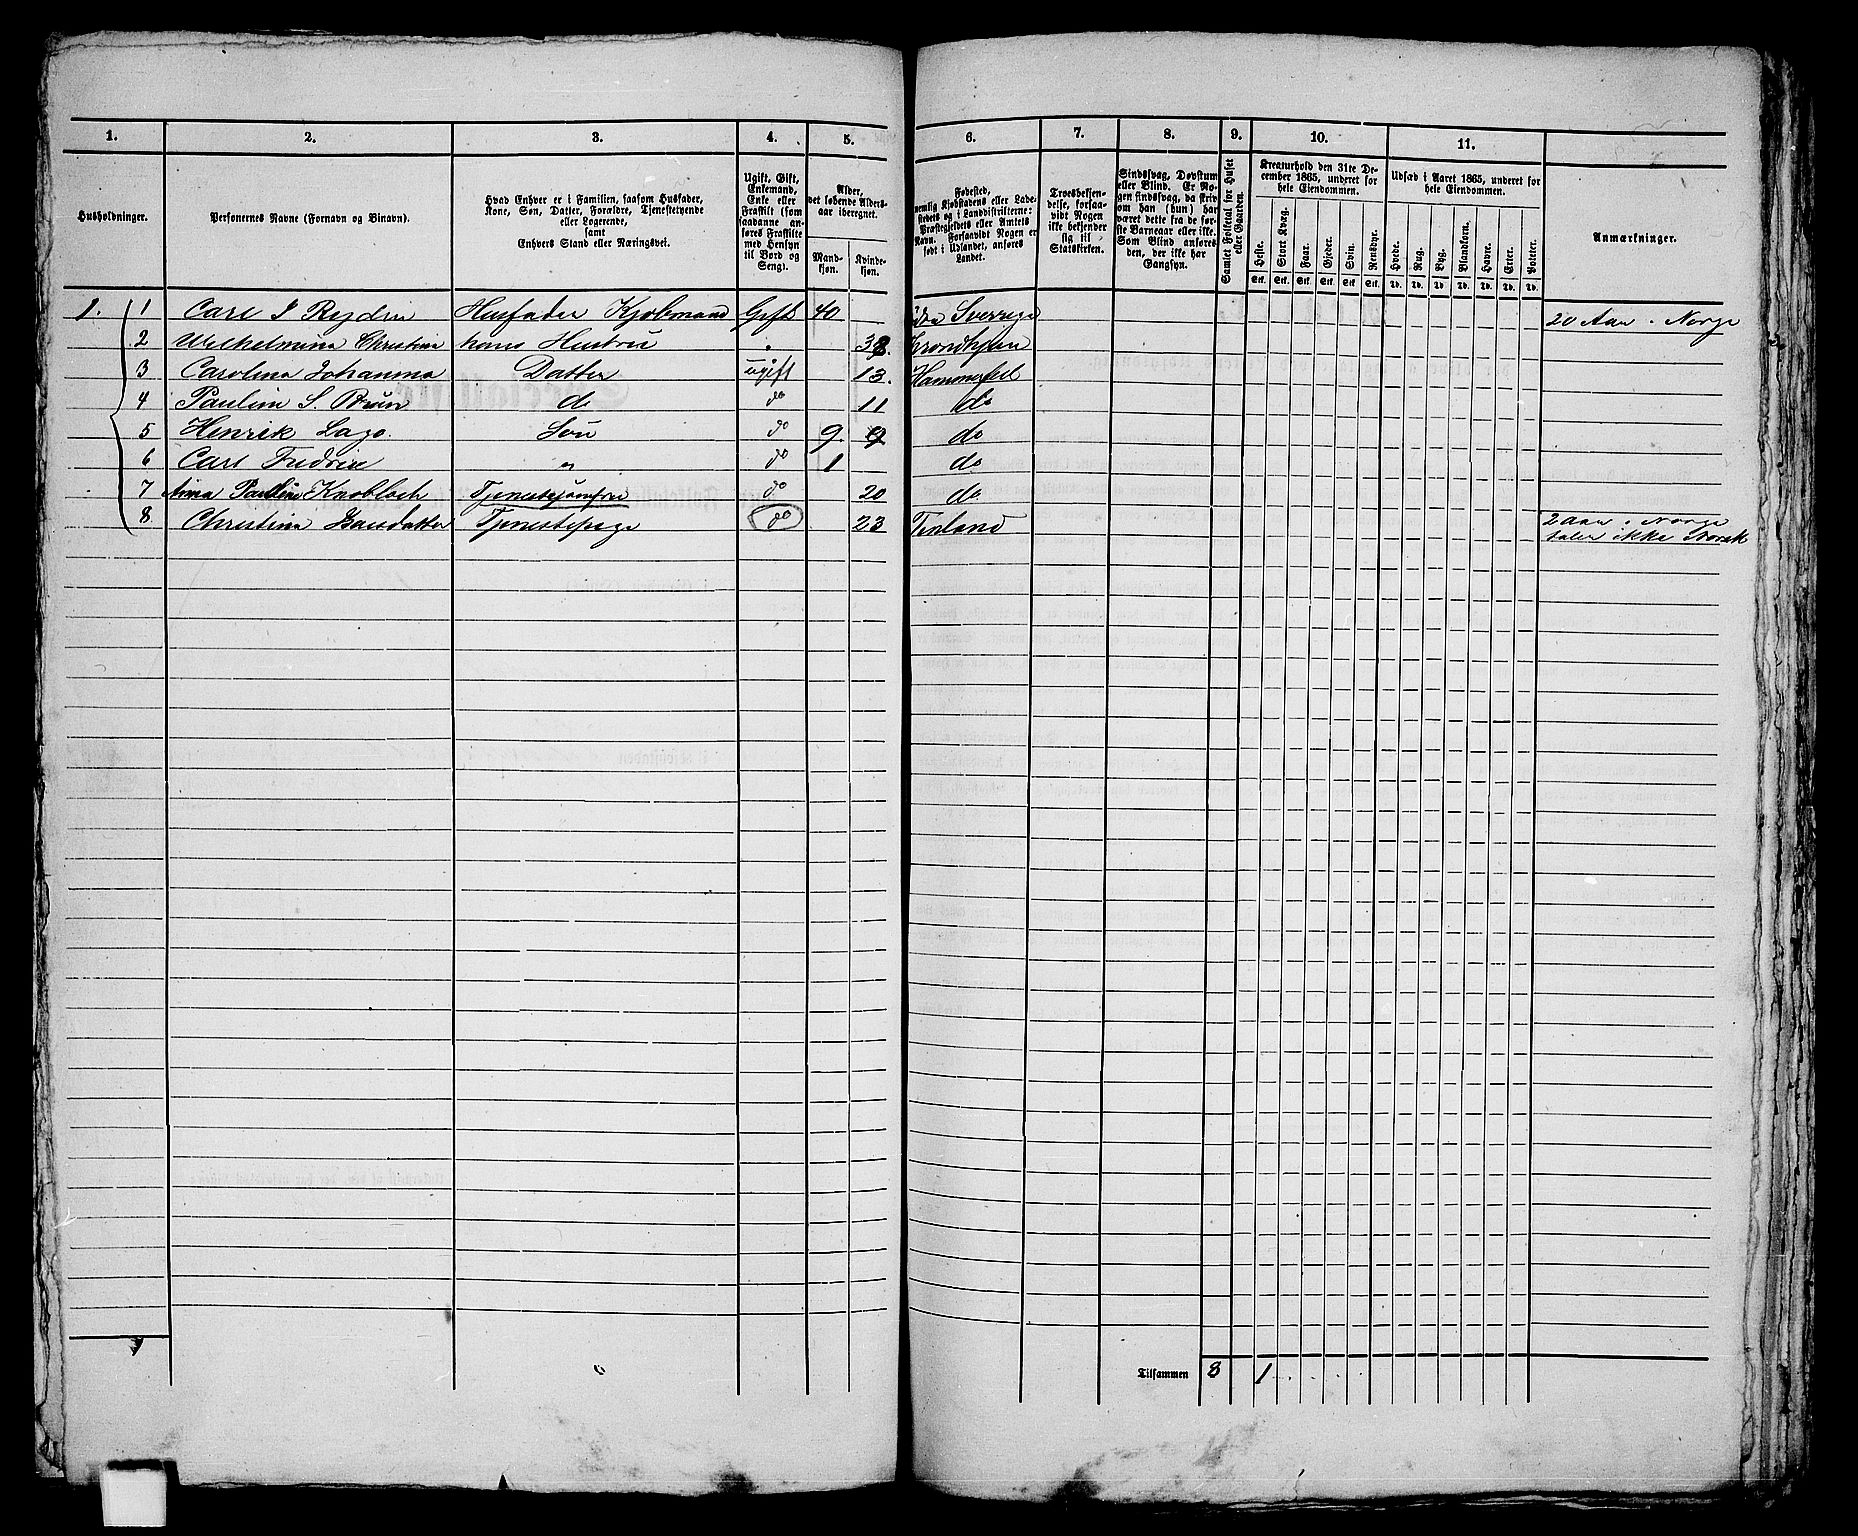 1. 2. 3. 4. 5. 6. 7. 8. 9. 10. 11.
Husholdninger.
Personernes Navne (Fornavn og Binavn).
Hvad Enhver er i Familien, saasom Husfader,
Kone, Søn, Datter, Forældre, Tjenestetyende
eller Logerende,
samt
Enhvers Stand eller Næringsvei.
Ugift, Gift,
Enkemand,
Enke eller
Fraskilt (som
saadanne an-
føres Fraskilte
med Hensyn
til Bord og
Seng).
Alder,
det løbende Alders-
aar iberegnet.
Mand-
kjøn.
Kvinde-
kjøn.
Fødested,
nemlig Kjøbstadens eller Lade-
stedets og i Landdistrikterne:
Præstegjeldets eller Amtets
Navn. Forsaavidt Nogen er
født i Udlandet, anføres
Landet.
Troesbekjen-
delse, forsaa-
vidt Nogen
ikke bekjender
sig til
Statskirken.
Sindssvag, Døvstum
eller Blind. Er No-
gen sindssvag, da skriv
om han (hun) har
været dette fra de før-
ste Barneaar eller ikke.
Som Blind anføres
den, der ikke har
Gangsyn.
Samlet Folketal for Huset
eller Gaarden.
Kreaturhold den 31te De-
cember 1865, underet for
hele Eiendommen.
Heste. Stort Kvæg. Faar. Gjeder. Svin. Rensdyr.
Stk. Stk. Stk. Stk. Stk. Stk.
Udsæd i Aaret 1865, underet for
hele Eiendommen.
Hvede. Rug. Byg. Blandkorn. Havre. Erter. Poteter.
Td. Td. Td. Td. Td. Td. Td.
Anmærkninger.
1. 1 Carl J Rydin Husfader Kjøbmand Gift 40 Sverrige 20 Aar i Norge
2 Wilhelmina Christina hans Hustru " 38. Trondhjem
3 Carolina Johanna Datter ugift 13. Hammerfest
4 Pauline S. Brun do do 11 do
5 Henrik Lago. Søn do 9 9 do
6 Carl Fredrik " do 1 do
7 Anna Pauline Knobloch Tjenestejomfru do 20 do
8 Christina Isaxdatter Tjenestepige do 23 Finland 2 Aar i Norge
taler ikke Norsk
Tilsammen 8 1